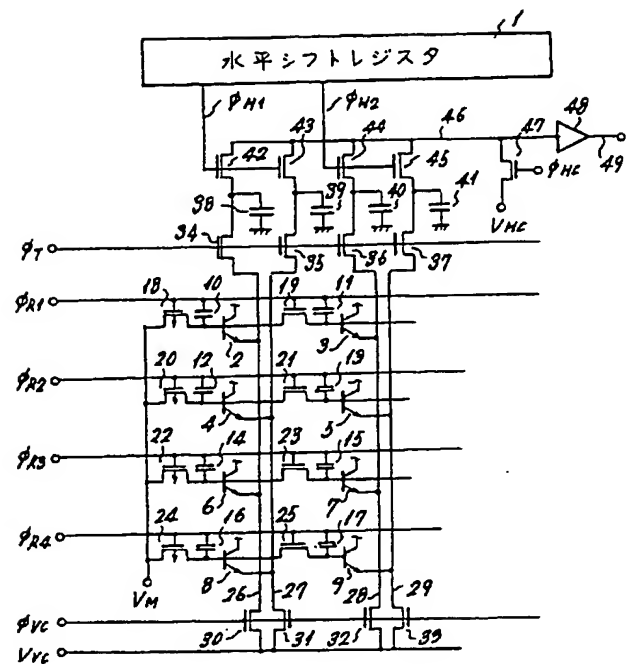 1
水平シフトレジスタ
φH1 φH2
46 47 48
42 43 44 45 49
φHC
38 39 40 41
VHC
φT 34 35 36 37
φR1 18 10 19 11
2 3
φR2 20 12 21 13
4 5
φR3 22 14 23 15
6 7
φR4 24 16 25 17
8 9
26 27 28 29
VM
φVC
30 31 32 33
VVC